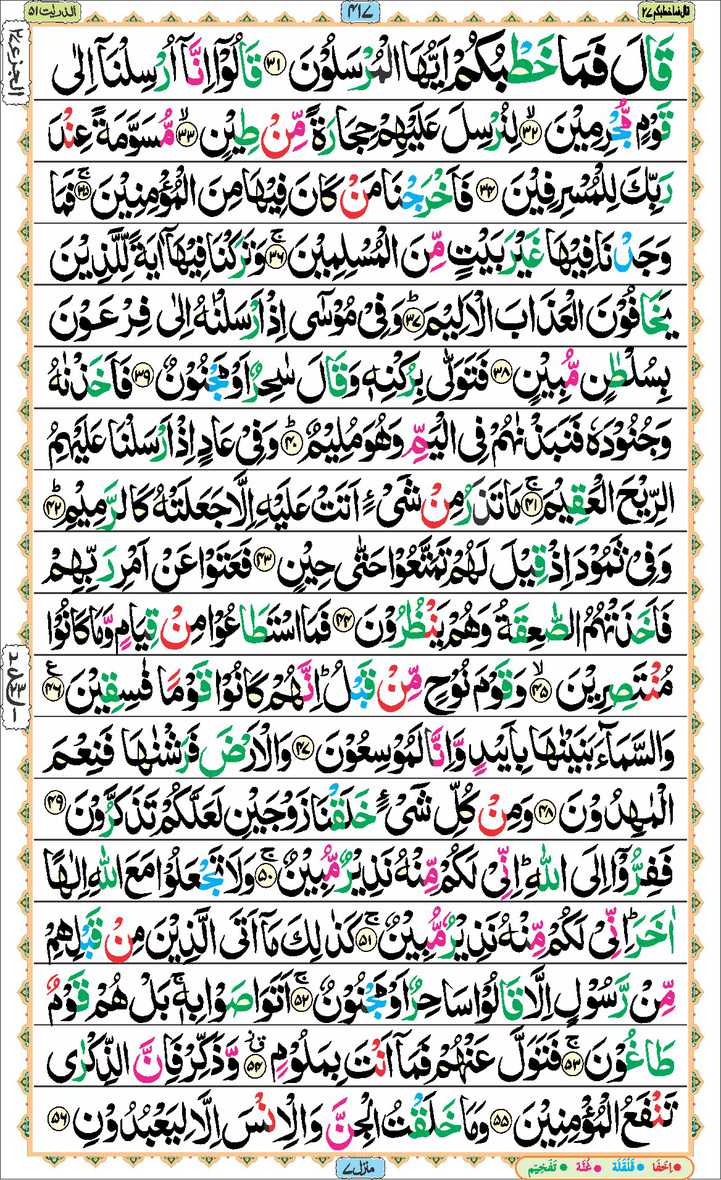 قال فما خطبکم ٢٧
٤١٧
الذریٰت ٥١
الجزء ٢٧
قَالَ فَمَا خَطْبُكُمْ اَیُّهَا الْمُرْسَلُوْنَ ۝٣١ قَالُوْۤا اِنَّاۤ اُرْسِلْنَاۤ اِلٰی
قَوْمٍ مُّجْرِمِیْنَ ۝٣٢ۙ لِنُرْسِلَ عَلَیْهِمْ حِجَارَةً مِّنْ طِیْنٍ ۝٣٣ۙ مُّسَوَّمَةً عِنْدَ
رَبِّكَ لِلْمُسْرِفِیْنَ ۝٣٤ فَاَخْرَجْنَا مَنْ كَانَ فِیْهَا مِنَ الْمُؤْمِنِیْنَ ۝٣٥ۚ فَمَا
وَجَدْنَا فِیْهَا غَیْرَ بَیْتٍ مِّنَ الْمُسْلِمِیْنَ ۝٣٦ۚ وَتَرَكْنَا فِیْهَاۤ اٰیَةً لِّلَّذِیْنَ
یَخَافُوْنَ الْعَذَابَ الْاَلِیْمَ ۝٣٧ؕ وَفِیْ مُوْسٰۤی اِذْ اَرْسَلْنٰهُ اِلٰی فِرْعَوْنَ
بِسُلْطٰنٍ مُّبِیْنٍ ۝٣٨ فَتَوَلّٰی بِرُكْنِهٖ وَقَالَ سٰحِرٌ اَوْ مَجْنُوْنٌ ۝٣٩ فَاَخَذْنٰهُ
وَجُنُوْدَهٗ فَنَبَذْنٰهُمْ فِی الْیَمِّ وَهُوَ مُلِیْمٌ ۝٤٠ؕ وَفِیْ عَادٍ اِذْ اَرْسَلْنَا عَلَیْهِمُ
الرِّیْحَ الْعَقِیْمَ ۝٤١ۚ مَا تَذَرُ مِنْ شَیْءٍ اَتَتْ عَلَیْهِ اِلَّا جَعَلَتْهُ كَالرَّمِیْمِ ۝٤٢ؕ
وَفِیْ ثَمُوْدَ اِذْ قِیْلَ لَهُمْ تَمَتَّعُوْا حَتّٰی حِیْنٍ ۝٤٣ فَعَتَوْا عَنْ اَمْرِ رَبِّهِمْ
فَاَخَذَتْهُمُ الصّٰعِقَةُ وَهُمْ یَنْظُرُوْنَ ۝٤٤ فَمَا اسْتَطَاعُوْا مِنْ قِیَامٍ وَّمَا كَانُوْا
مُنْتَصِرِیْنَ ۝٤٥ۙ وَقَوْمَ نُوْحٍ مِّنْ قَبْلُ ؕ اِنَّهُمْ كَانُوْا قَوْمًا فٰسِقِیْنَ ۝٤٦ ع
وَالسَّمَآءَ بَنَیْنٰهَا بِاَیْىدٍ وَّاِنَّا لَمُوْسِعُوْنَ ۝٤٧ وَالْاَرْضَ فَرَشْنٰهَا فَنِعْمَ
الْمٰهِدُوْنَ ۝٤٨ وَمِنْ كُلِّ شَیْءٍ خَلَقْنَا زَوْجَیْنِ لَعَلَّكُمْ تَذَكَّرُوْنَ ۝٤٩
فَفِرُّوْۤا اِلَی اللّٰهِ ؕ اِنِّیْ لَكُمْ مِّنْهُ نَذِیْرٌ مُّبِیْنٌ ۝٥٠ۚ وَلَا تَجْعَلُوْا مَعَ اللّٰهِ اِلٰهًا
اٰخَرَ ؕ اِنِّیْ لَكُمْ مِّنْهُ نَذِیْرٌ مُّبِیْنٌ ۝٥١ۚ كَذٰلِكَ مَاۤ اَتَی الَّذِیْنَ مِنْ قَبْلِهِمْ
مِّنْ رَّسُوْلٍ اِلَّا قَالُوْا سَاحِرٌ اَوْ مَجْنُوْنٌ ۝٥٢ۚ اَتَوَاصَوْا بِهٖ ۚ بَلْ هُمْ قَوْمٌ
طَاغُوْنَ ۝٥٣ۚ فَتَوَلَّ عَنْهُمْ فَمَاۤ اَنْتَ بِمَلُوْمٍ ۝٥٤ وَّذَكِّرْ فَاِنَّ الذِّكْرٰی
تَنْفَعُ الْمُؤْمِنِیْنَ ۝٥٥ وَمَا خَلَقْتُ الْجِنَّ وَالْاِنْسَ اِلَّا لِیَعْبُدُوْنِ ۝٥٦
منزل ٧
اخفا قلقله غنه تفخیم